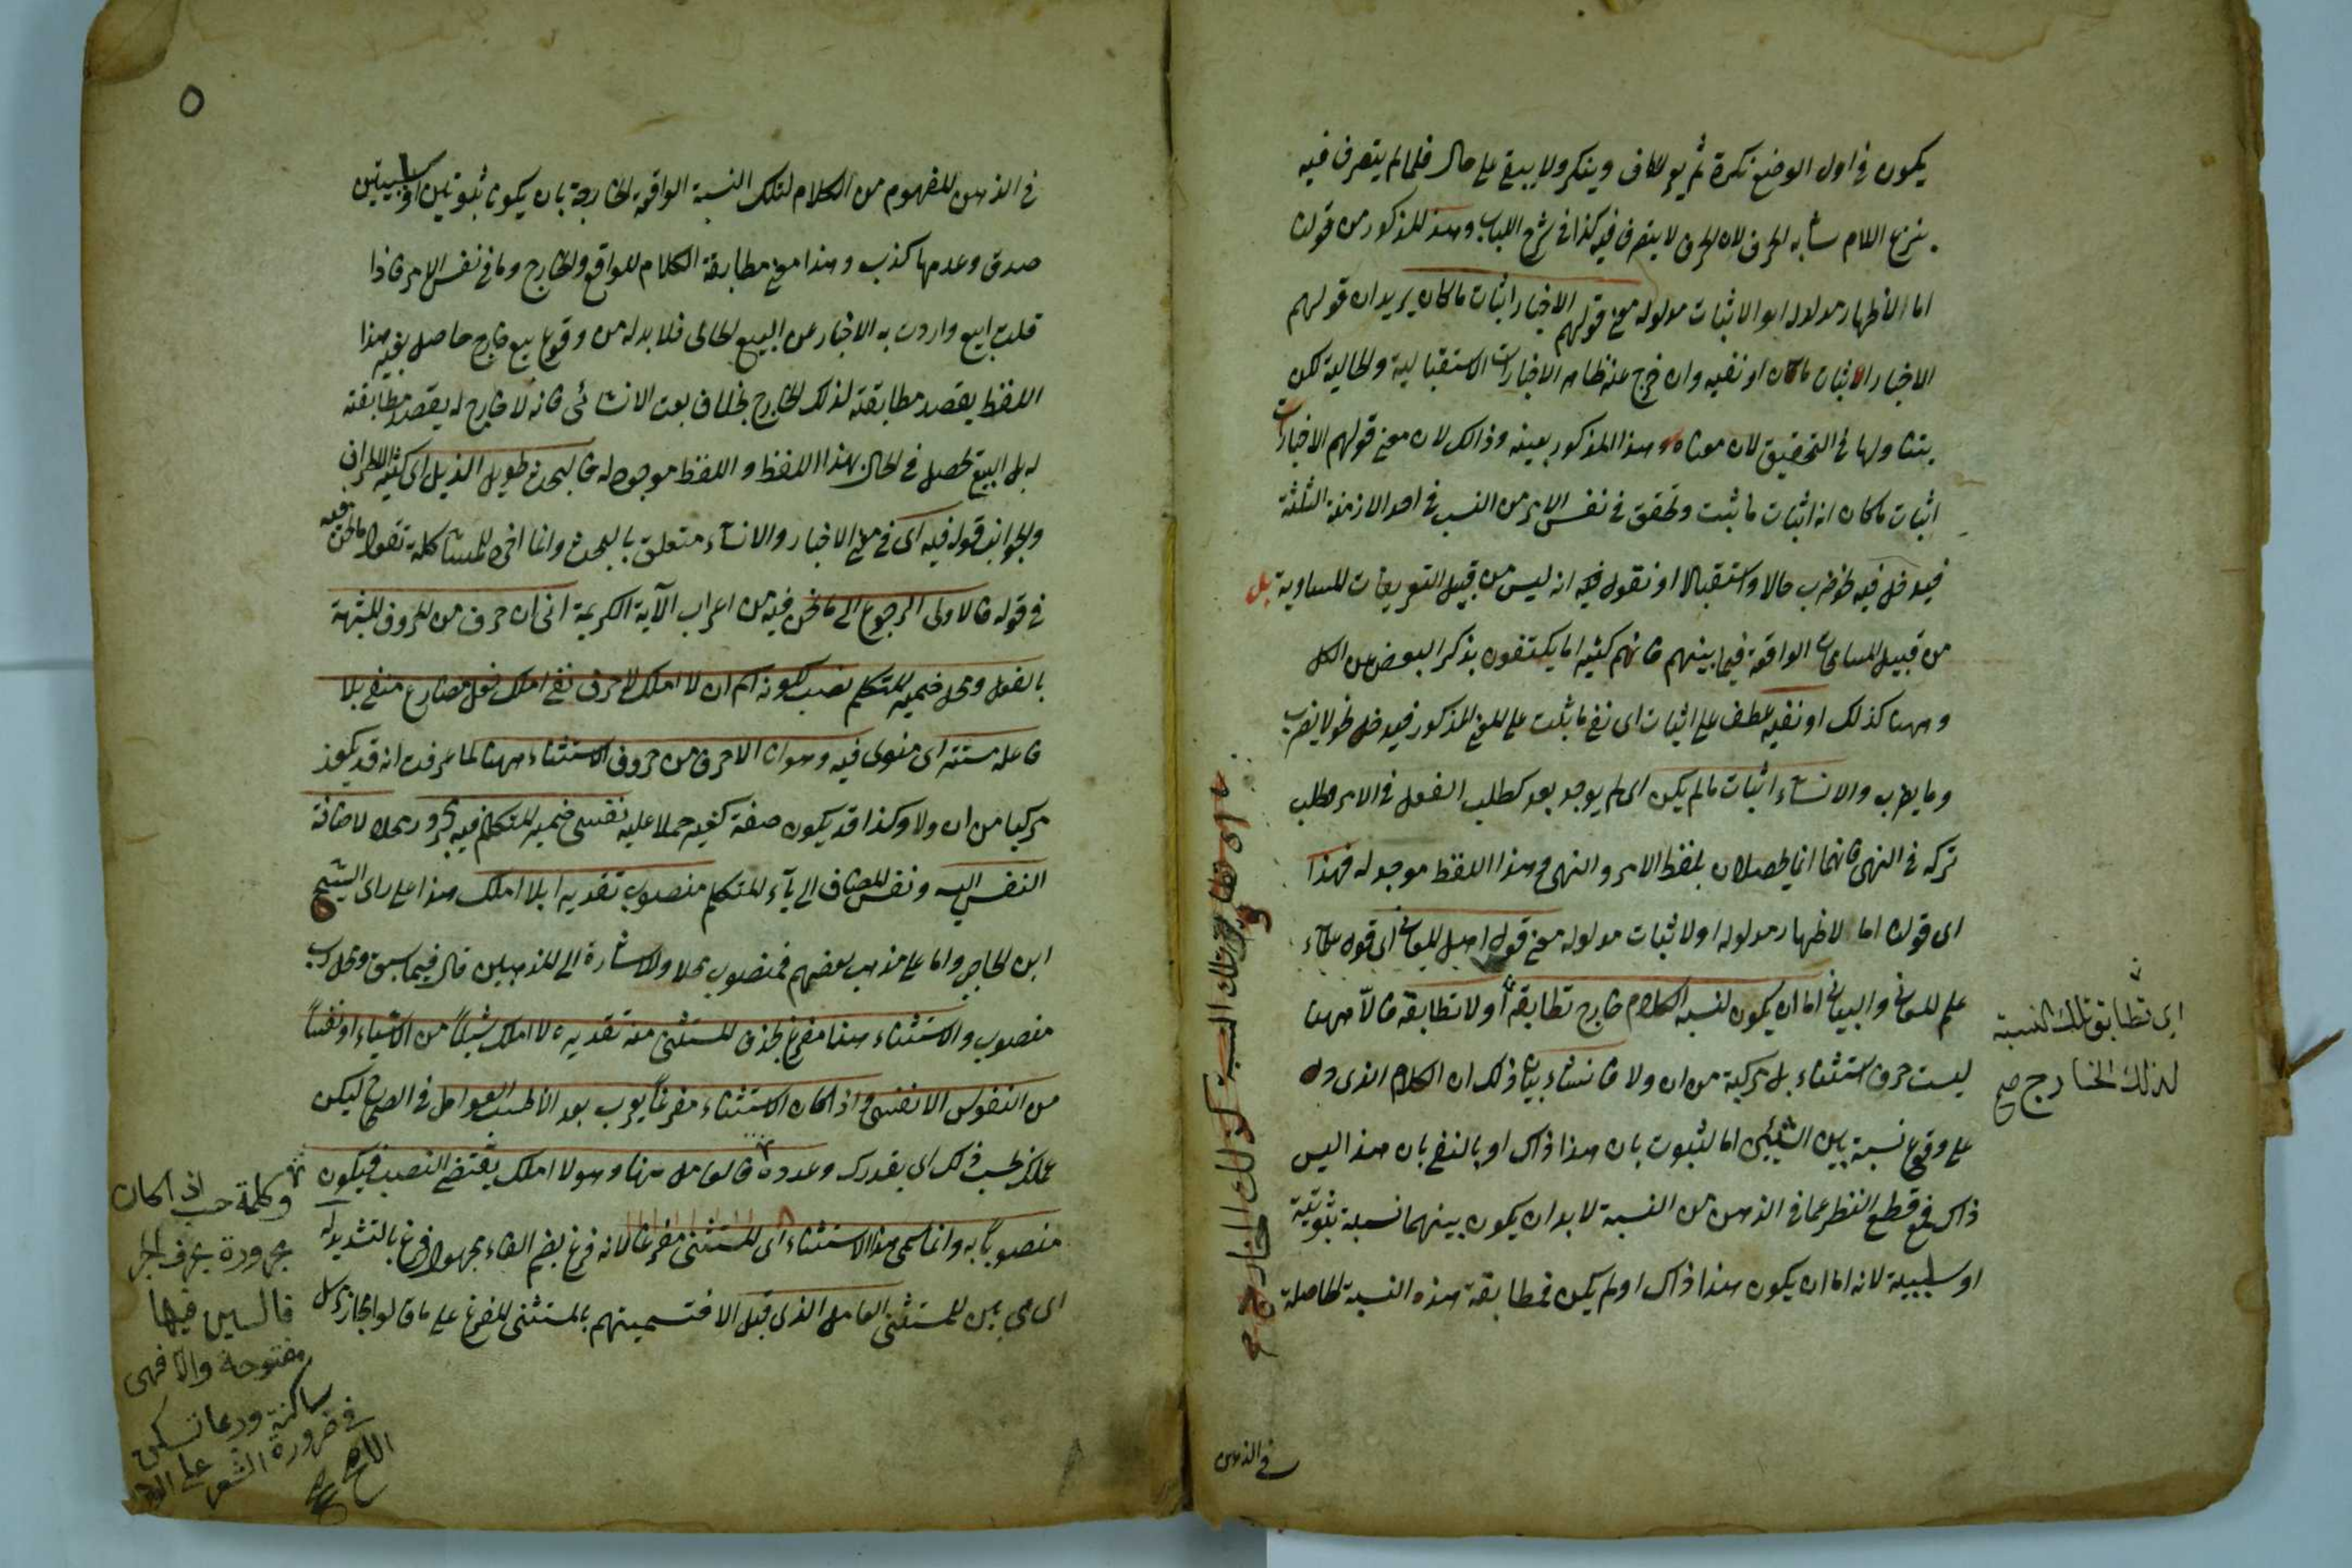 يكون في اول الوضع نكرة ثم يعرف وينكر ولا يبقى على حال فلما لم يتصرف فيه
بنزع اللام شابه الحرف لان الحرف لا يتصرف فيه كذا في شرح اللباب وهذا المذكور من قولنا
اما لاظهار مدلوله او لاثبات مدلوله معنى قولهم الاخبار اثبات ما كان يريد ان قولهم
الاخبار اثبات ما كان او نفيه وان خرج عنه ظاهر الاخبارات الاستقبالية والحالية لكن
يتناولها في التحقيق لان معناه وهذا المذكور بعينه وذلك لان معنى قولهم الاخبارات
اثبات ما كان انه اثبات ما ثبت وتحقق في نفس الامر من النسب في احد الازمنة الثلثة
فيدخل فيه نحو يضرب حالا واستقبالا او نقول فيه انه ليس من قبيل التعريفات المساوية بل
من قبيل المسامحات الواقعة فيما بينهم فانهم كثيرا ما يكتفون بذكر البعض من الكل
وههنا كذلك او نفيه عطف على اثبات اى نفى ما يثبت على المعنى المذكور فيدخل نحو لا يضرب
وما يضرب والانشاء اثبات ما لم يكن اى لم يوجد بعد كطلب الفعل في الامر وطلب
تركه في النهى فانهما انما يحصلان بلفظ الامر والنهى وهذا اللفظ موجد له فهذا
اى قولنا اما لاظهار مدلوله او لاثبات مدلوله معنى قول اهل المعانى اى قول علماء
علم المعانى والبيان اما ان يكون لنسبة الكلام خارج تطابقه او لا تطابقه فالا ههنا
ليست حرف استثناء بل مركبة من ان ولا فانشاء بيان ذلك ان الكلام الذى دل
على وقوع نسبة بين الشيئين اما بالثبوت بان هذا ذاك او بالنفى بان هذا ليس
ذاك فمع قطع النظر عما في الذهن من النسبة لا بد ان يكون بينهما نسبة ثبوتية
او سلبية لانه اما ان يكون هذا ذاك او لم يكن فمطابقة هذه النسبة الحاصلة
في الذهن
اى تطابق تلك النسبة
لذلك الخارج صح
تلك النسبة كذلك الخارج صح
٥
في الذهن المفهوم من الكلام لتلك النسبة الواقعة الخارجة بان يكونا ثبوتيتين او سلبيتين
صدق وعدمها كذب وهذا معنى مطابقة الكلام للواقع والخارج وما في نفس الامر فاذا
قلت ابيع واردت به الاخبار عن البيع الحالى فلا بد له من وقوع بيع خارج حاصل بغير هذا
اللفظ يقصد مطابقته لذلك الخارج بخلاف بعت الانشائى فانه لا خارج له يقصد مطابقته
له بل البيع يحصل في الحال بهذا اللفظ واللفظ موجد له فالبحث طويل الذيل اى كثير الاطراف
والجوانب قوله فيه اى في معنى الاخبار والانشاء متعلق بالبحث وانما اخره للمشاكلة بقوله ما نحن فيه
في قوله فالاولى الرجوع الى ما نحن فيه من اعراب الآية الكريمة انى ان حرف من الحروف المشبهة
بالفعل ومحل ضمير المتكلم نصب لكونه اسم ان لا املك لا حرف نفى املك فعل مضارع منفى بلا
فاعله مستتر اى منوى فيه وهو انا الا حرف من حروف الاستثناء ههنا لما عرفت انه قد يكون
مركبا من ان ولا وكذا قد يكون صفة كغير حملا عليه نفسى ضمير المتكلم فيه مجرور محلا لاضافة
النفس اليه ونفس المضاف الى ياء المتكلم منصوب تقديرا بلا املك هذا على راى الشيخ
ابن الحاجب واما على مذهب بعضهم فمنصوب محلا والاشارة الى المذهبين قال فيما سبق ومحل رب
منصوب والاستثناء هنا مفرغ بحذف المستثنى منه تقديره لا املك شيئا من الاشياء او نفسا
من النفوس الا نفسى واذا كان الاستثناء مفرغا يعرب بعد الا بحسب العوامل في الصحاح ليكن
عملك بحسب ذلك اى بقدره وعدده فالعامل هنا وهو لا املك يقتضى النصب فيكون
منصوبا به وانما سمى هذا الاستثناء اى المستثنى مفرغا لانه فرغ بضم الفاء مجهول فرغ بالتشديد له
اى من بين المستثنى العامل الذى قبل الا فتسميتهم بالمستثنى المفرغ على ما قالوا مجاز مرسل
وكلمة حسب اذا كان
مجرورة بحرف الجر
فالسين فيها
مفتوحة والا فهى
ساكنة وربما تسكن
في ضرورة الشعر